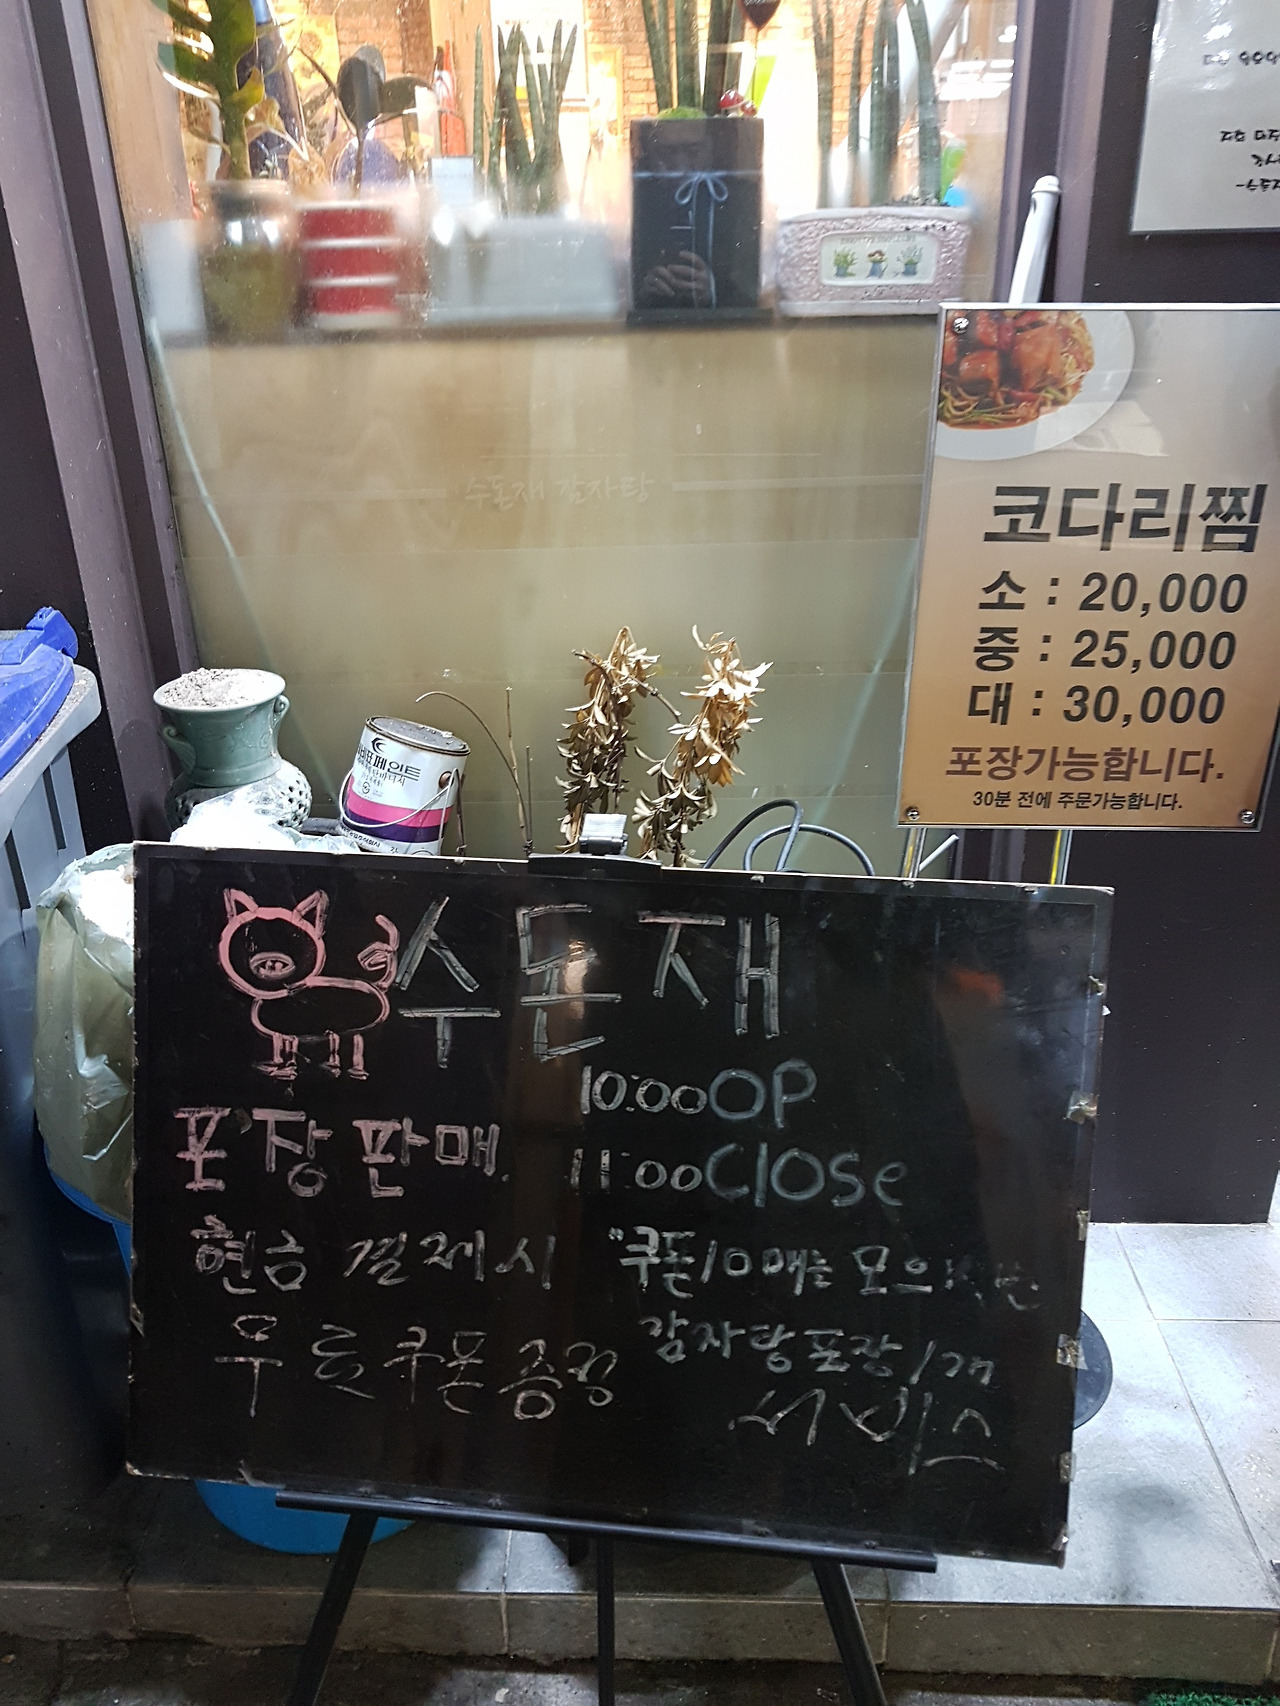 수돈재 감자탕
코다리찜
소 : 20,000
중 : 25,000
대 : 30,000
포장가능합니다.
30분 전에 주문가능합니다.
페인트
수돈재
10:00 OP
포장판매. 11:00 Close
현금 결제시
무료쿠폰증정
"쿠폰10매는 모으
감자탕포장1개
서비스